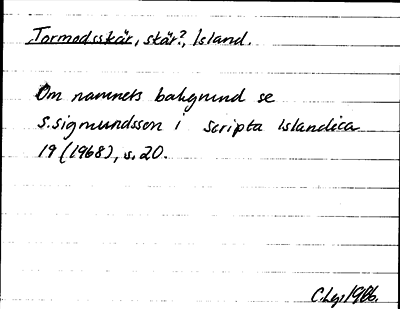 Tormodsskär, skär?, Island.
Om namnets bakgrund se
S. Sigmundsson i Scripta Islandica
19 (1968), s. 20.
C. Lg. 1986.